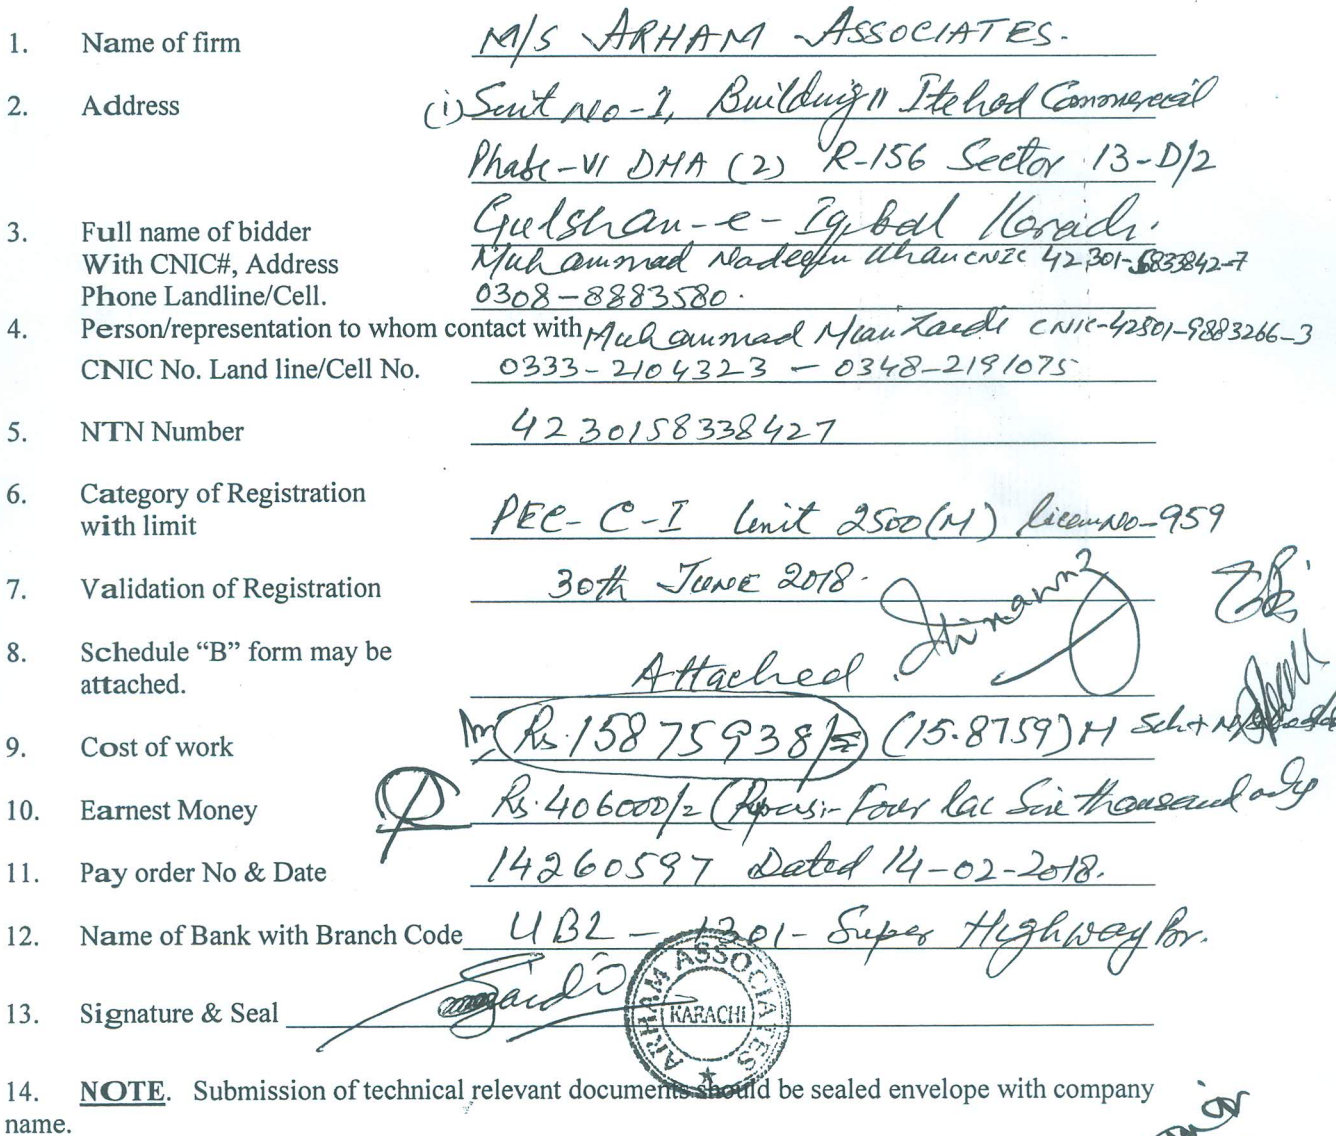 1. Name of firm M/S ARHAM ASSOCIATES.
2. Address (i) Suit No-1, Building 11 Itehad Commercial
Phase-VI DHA (2) R-156 Sector 13-D/2
Gulshan-e-Iqbal Karachi.
3. Full name of bidder
With CNIC#, Address Muhammad Nadeem Khan CNIC 42301-5833842-7
Phone Landline/Cell. 0308-8883580.
4. Person/representation to whom contact with Muhammad Mian Zaidi CNIC-42501-9883266-3
CNIC No. Land line/Cell No. 0333-2104323 - 0348-2191075
5. NTN Number 4230158338427
6. Category of Registration
with limit PEC-C-I limit 2500(M) licen No-959
7. Validation of Registration 30th JUNE 2018.
8. Schedule “B” form may be
attached. Attached.
9. Cost of work Rs.15875938/= (15.8759)M Sch+
10. Earnest Money Rs.406000/= (Rupees:- Four Lac Six thousand only
11. Pay order No & Date 14260597 Dated 14-02-2018.
12. Name of Bank with Branch Code UBL - 1301- Super Highway Br.
13. Signature & Seal
ARHAM ASSOCIATES
KARACHI
14. NOTE. Submission of technical relevant documents should be sealed envelope with company
name.